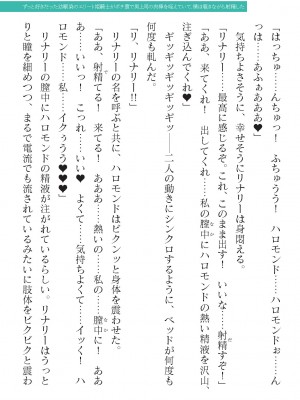 「はっちゅ…んちゅっ！　ふちゅうう！　ハロモンド……ハロモンドぉ……んっは……あふぁぁああ♥」
気持ちよさそうに、幸せそうにリナリーは身悶える。
「リナリー……最高に感じるぞ。これ、このまま出す！　いいな……射精すぞ！」
「ああ、来てくれ！　出してくれ……私の膣中にハロモンドの熱い精液を沢山、
注ぎ込んでくれ♥」
ギッギッギッギッギッ――二人の動きにシンクロするように、ベッドが何度も
何度も軋んだ。
「リ、リナリー!!」
リナリーの名を呼ぶと共に、ハロモンドはビクンッと身体を震わせた。
「ああ、射精てる！　来てる！　あああ……熱いの……私の……膣中に！　ああ
あ……いいっ！　これ……いい♥　よくて……気持ちよくて……イッく！　ハ
ロモンド……私……イクぅうう♥♥♥」
リナリーの膣中にハロモンドの精液が注がれているらしい。リナリーはうっと
りと瞳を細めつつ、まるで電流でも流されているみたいに肢体をビクビクと震わ